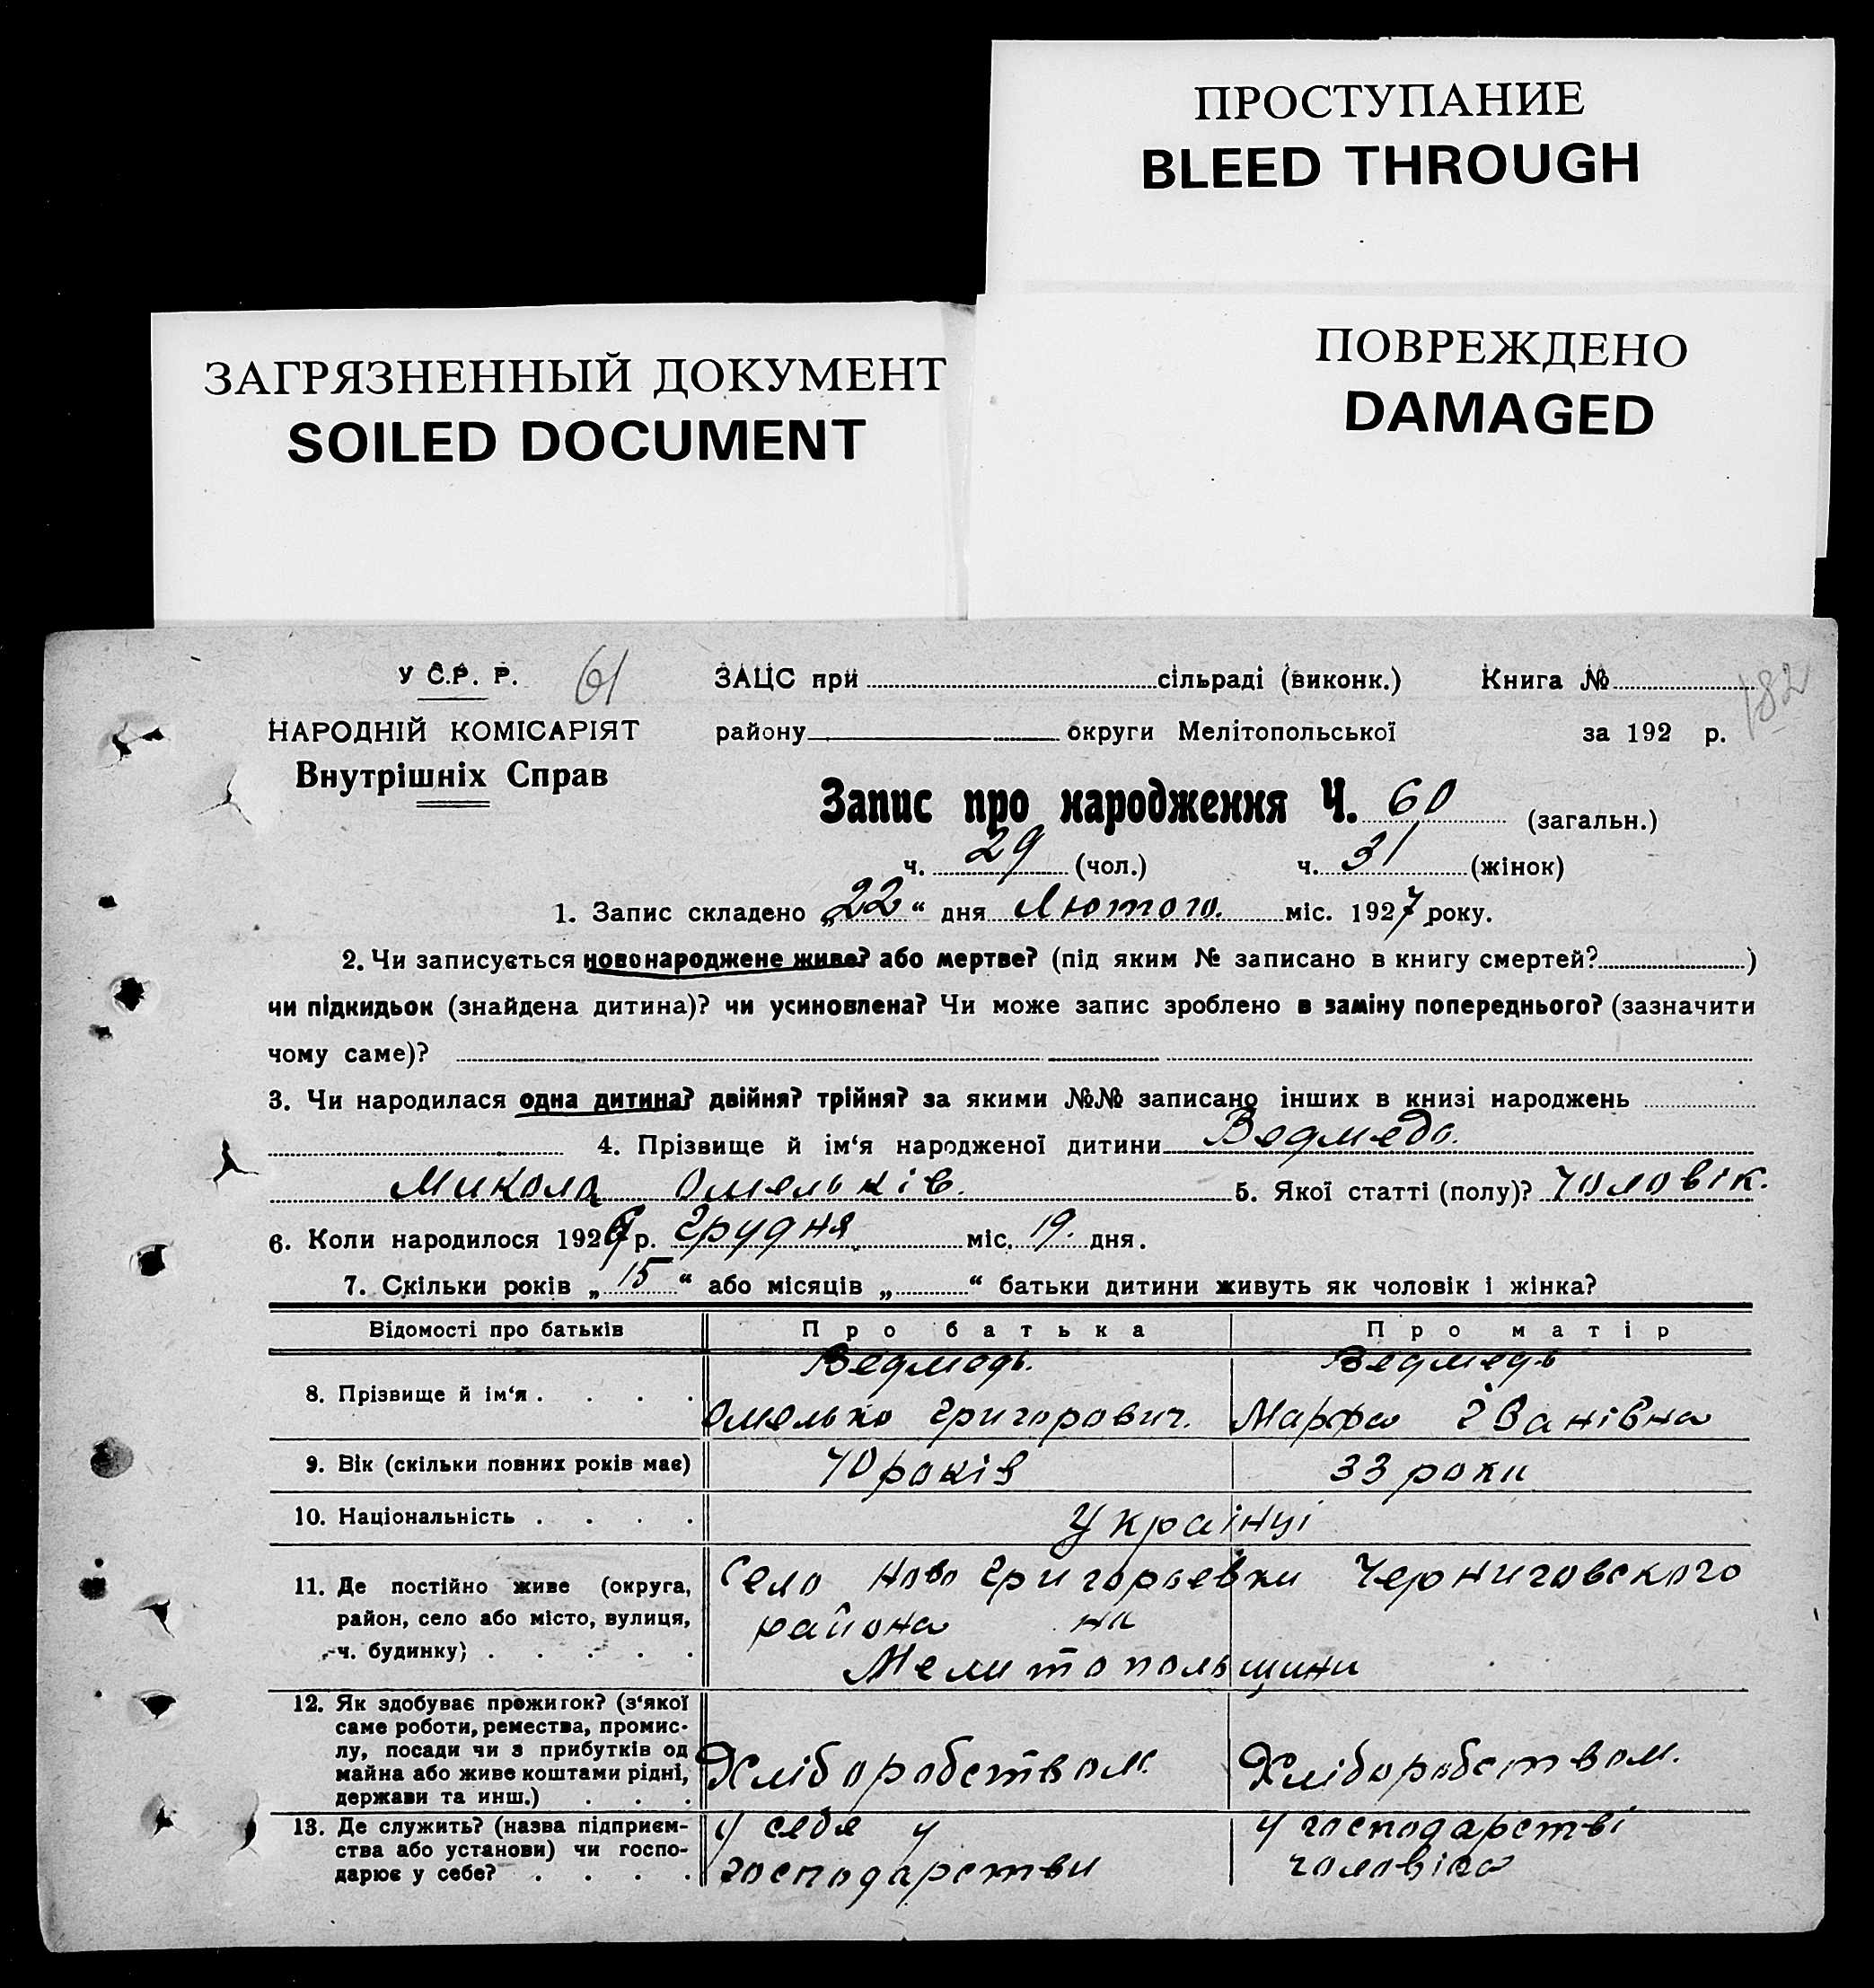 ПРОСТУПАНИЕ
BLEED THROUGH
ЗАГРЯЗНЕННЫЙ ДОКУМЕНТ
SOILED DOCUMENT
ПОВРЕЖДЕНО
DAMAGED
У С.Р. Р. 61 ЗАЦС при сільраді (виконк.) Книга № 182
НАРОДНІЙ КОМІСАРІЯТ району округи Мелітопольської за 192 р.
Внутрішніх Справ
Запис про народження Ч. 60 (загальн.)
ч. 29 (чол.) ч. 31 (жінок)
1. Запис складено „22“ дня Лютого. міс. 1927 року.
2. Чи записується новонароджене живе? або мертве? (під яким № записано в книгу смертей? )
чи підкидьок (знайдена дитина)? чи усиновлена? Чи може запис зроблено в заміну попереднього? (зазначити
чому саме)?
3. Чи народилася одна дитина? двійня? трійня? за якими №№ записано інших в книзі народжень
4. Прізвище й ім‘я народженої дитини Ведмедь.
Микола Омельків. 5. Якої статті (полу)? Чоловік.
6. Коли народилося 1926 р. Грудня міс. 19. дня.
7. Скільки років „15“ або місяців „ “ батьки дитини живуть як чоловік і жінка?
Відомості про батьків Про батька Про матір
Ведмедь. Ведмедь
8. Прізвище й ім‘я . . . . Омелько Григорович. Марфа Іванівна
9. Вік (скільки повних років має) 40 років 33 роки
10. Національність . . . . Українці
11. Де постійно живе (округа, Село Ново Григорьевки Черниговского
район, село або місто, вулиця, района на
ч. будинку) . . . . . Мелитопольщини
12. Як здобуває прожиток? (з‘якої
саме роботи, ремества, промис-
лу, посади чи з прибутків од
майна або живе коштами рідні, Хліборобством. Хліборобством.
держави та инш.) . . .
13. Де служить? (назва підприєм- у себе у у господарстві
ства або установи) чи госпо- господарстви чоловіка
дарює у себе? . . . .